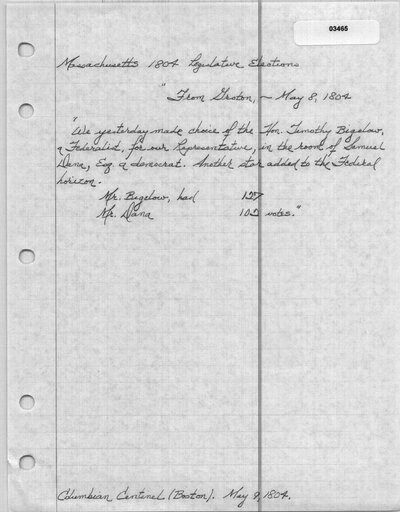 03465
Massachusetts 1804 Legislative Elections
"From Groton, — May 8, 1804
"We yesterday made choice of the Hon. Timothy Bigelow,
a Federalist, for our Representative, in the room of Samuel
Dana, Esq. a democrat. Another star added to the Federal
horizon.
Mr. Bigelow, had 127
Mr. Dana 102 votes."
Columbian Centinel (Boston). May 9, 1804.